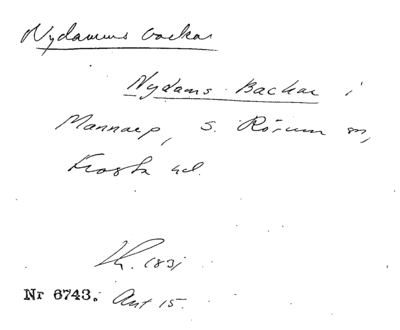 Nydamms backar
Nydams Backar i
Mannarp, S. Rörum sn,
Frosta hd.
Lh. 1831
Nr 6743. Ant 15.